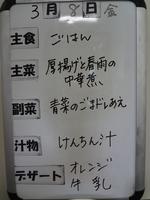 3月8日金
主食 ごはん
主菜 厚揚げと春雨の
中華煮
副菜 青菜のごまドレあえ
汁物 けんちん汁
デザート オレンジ
牛乳